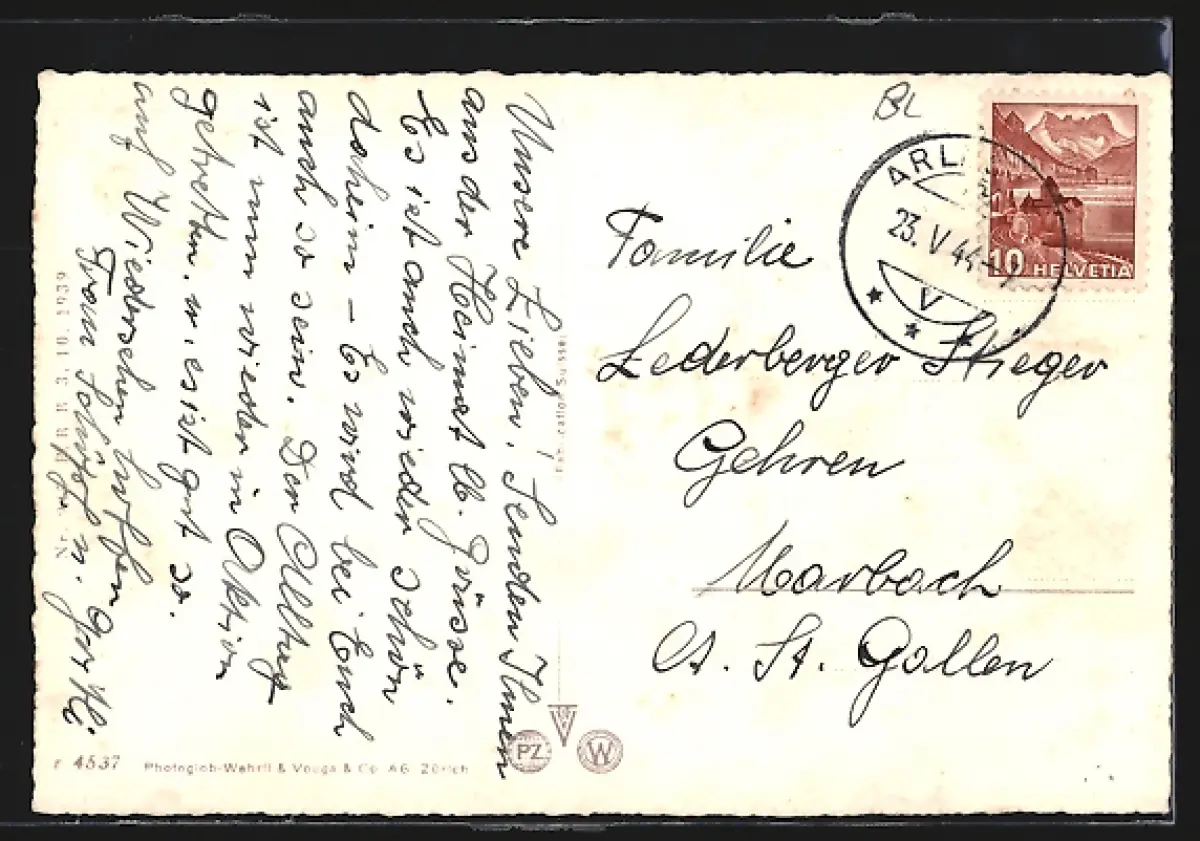 Unsere Lieben! Senden Ihnen
aus der Heimat lb. Grüsse.
Es ist auch wieder schön
daheim – Es wird bei Euch
auch so sein. Der Alltag
ist nun wieder in Aktion
getreten. u. es ist gut so.
auf Wiedersehen hoffen
Gertli
Frau
BL
ARL
23. V. 44
V
10 HELVETIA
Familie
Lederberger Stieger
Gehren
Marbach
Ct. St. Gallen
Fabrication Suisse
PZ
W
4537 Photoglob-Wehrli & Vouga & Co. AG. Zürich
3. 10. 1939